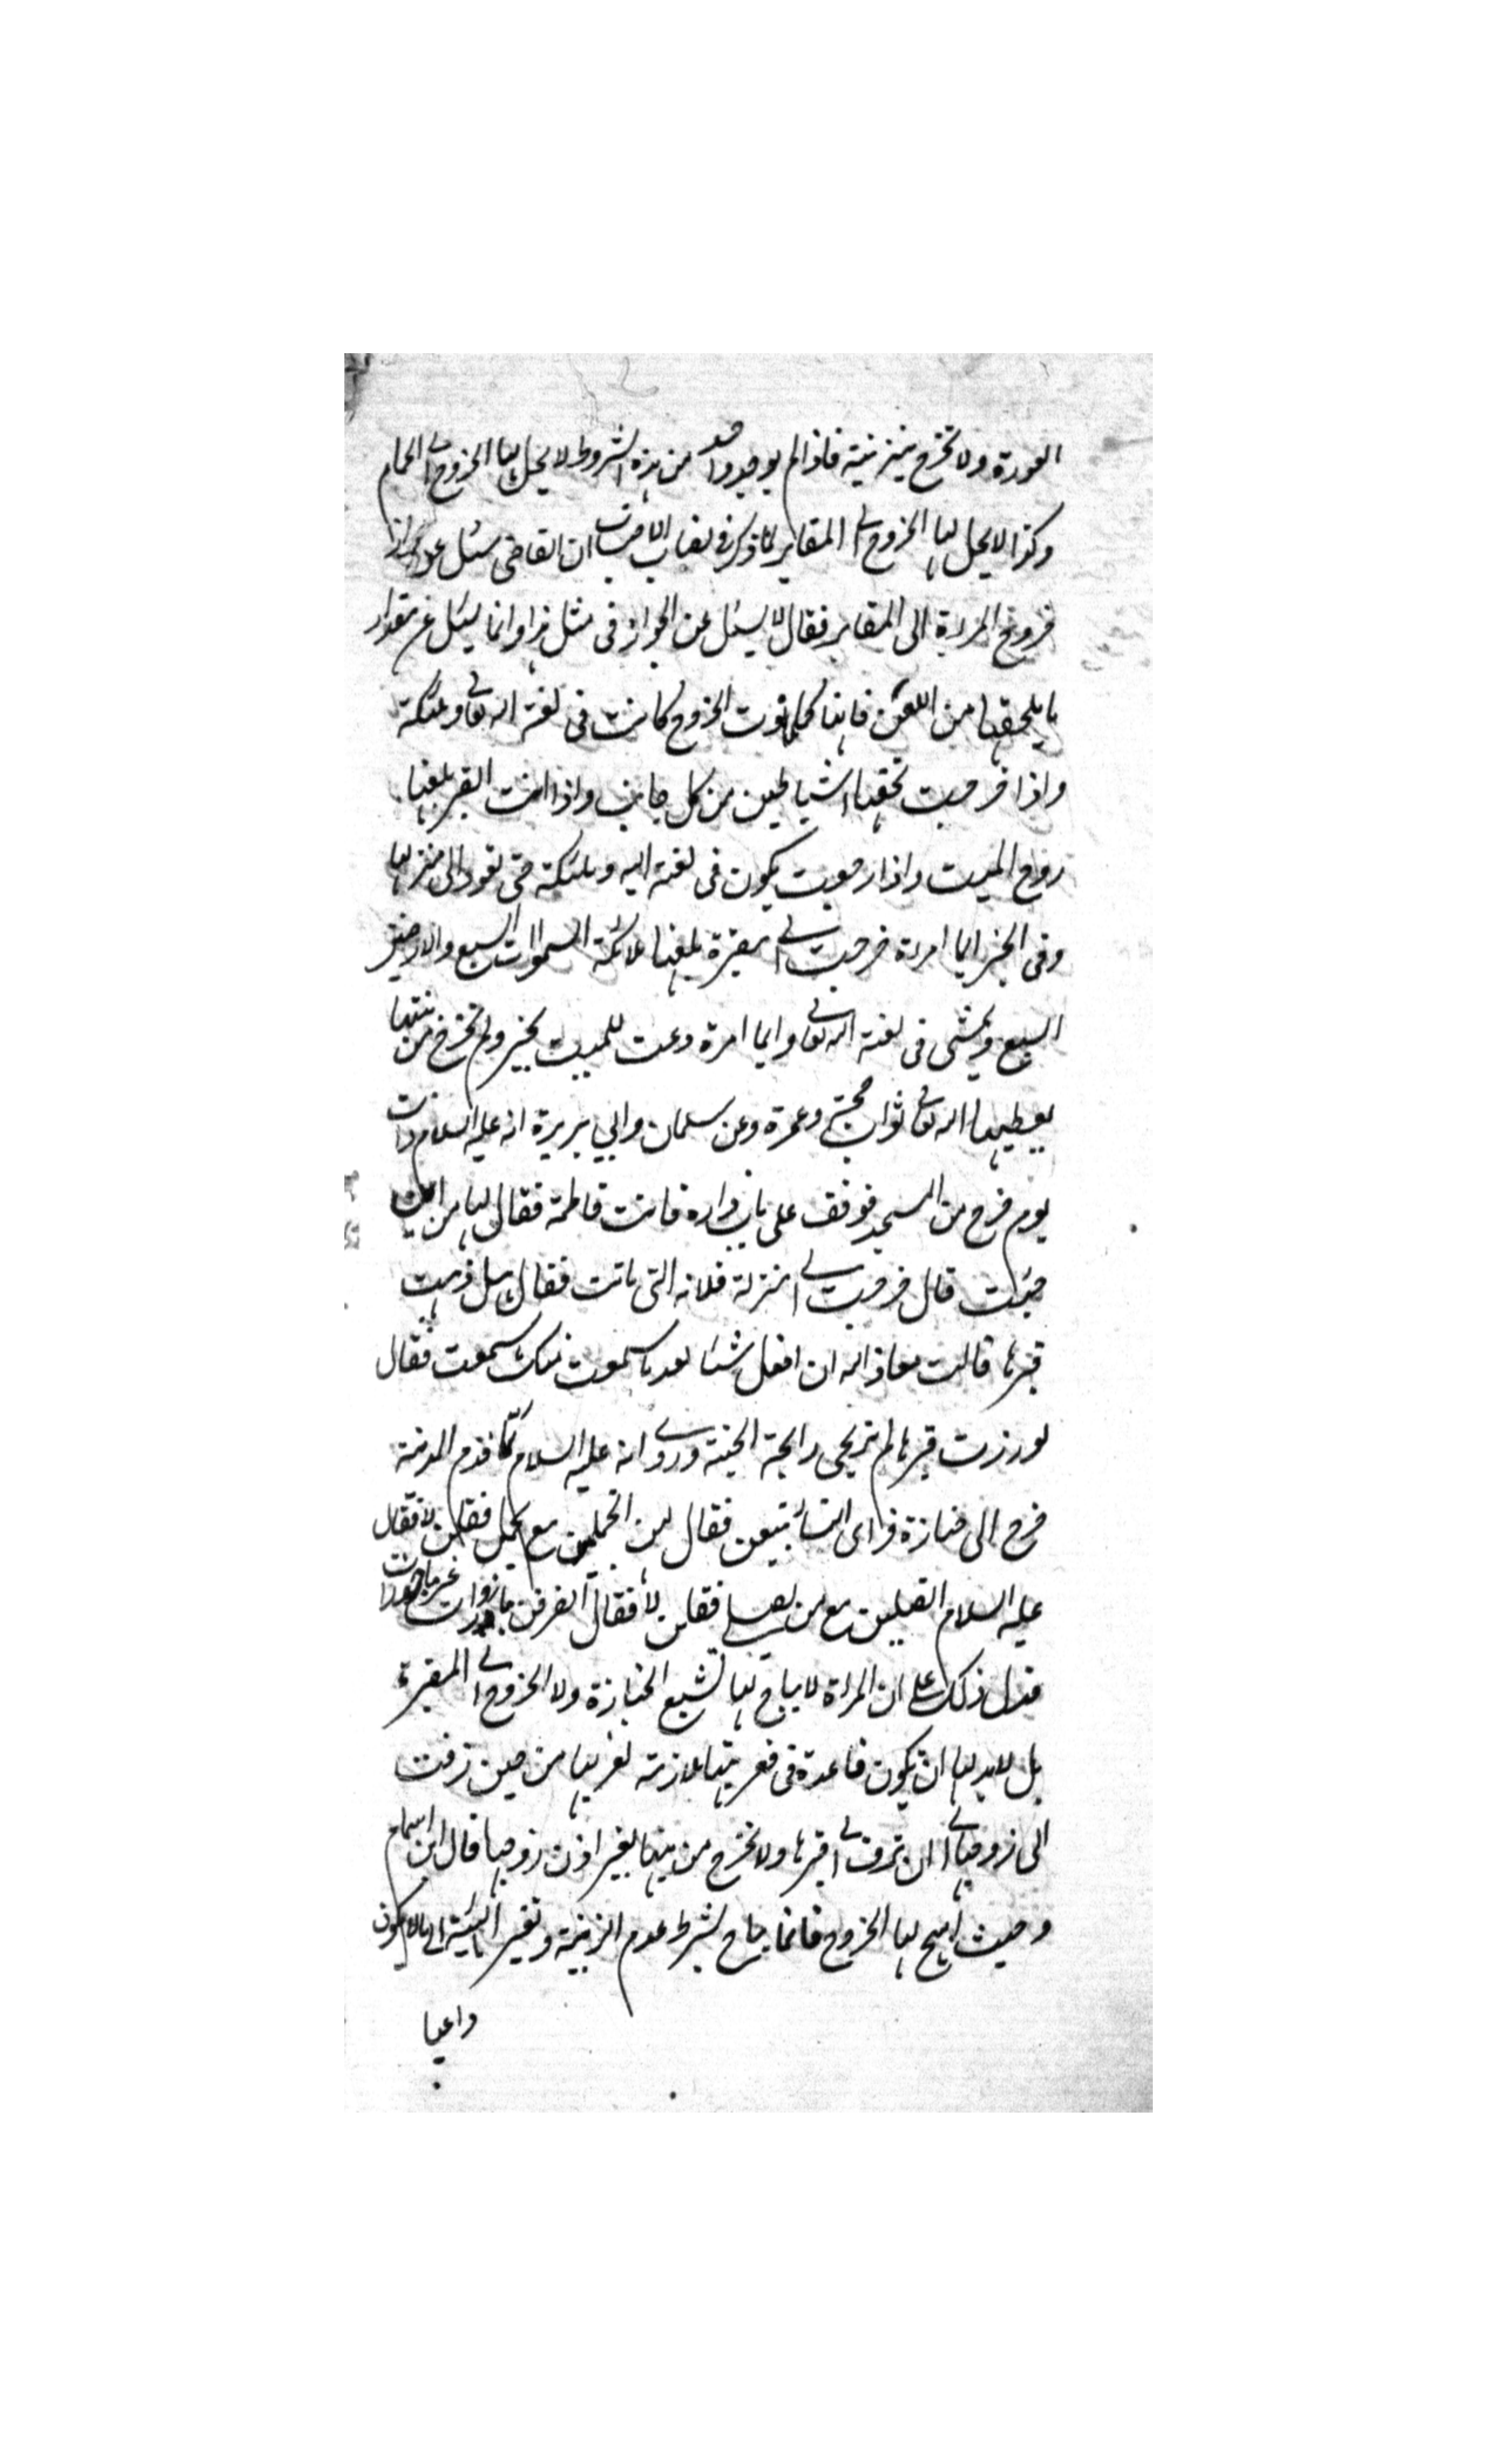 العورة ولا تخرج بتزينية فاذا لم يوجد واحد من هذه الشروط لا يحل لها الخروج الى الحمام
وكذا لا يحل لها الخروج الى المقابر لما ذكر في نصاب الاحتساب ان القاضى سئل عن جواز
خروج المراءة الى المقابر فقال لا يسئل عن الجواز فى مثل هذا وانما يسئل عن مقدار
ما يلحقها من اللعن فانها كلما نوت الخروج كانت فى لعنة الله تعالى وملئكته
واذا خرجت تحفها الشياطين من كل جانب واذا اتت القبر يلعنها
روح الميت واذا رجعت يكون فى لعنة الله وملئكته حتى تعود الى منزلها
وفى الخبر ايما امراة خرجت الى مقبرة يلعنها ملائكة السموات السبع والارضين
السبع وتمشى فى لعنة الله تعالى وايما امرة دعت للميت بخير ولم تخرج من بيتها
يعطيها الله تعالى ثواب حجة وعمرة وعن سلمان وابي هريرة انه عليه السلام ذات
يوم خرج من المسجد فوقف على باب داره فاتت فاطمة فقال لها من اين
جئت قال خرجت الى منزلة فلانه التى ماتت فقال هل ذهبت
قبرها قالت معاذ الله ان افعل شئا بعد ما سمعت منك سمعت فقال
لو زرت قبرها لم تريحى رايحة الجنة وروى انه عليه السلام لما قدم المدينة
خرج الى جنازة فراى النساء يتبعن فقال لهن اتحملن مع يحمل فقلن لا فقال
عليه السلام اتصلين مع من يصلى فقلن لا فقال انصرفن مازورات غير ماجورات
فدل ذلك على ان المراة لا يباح لها تشيع الجنازة ولا الخروج الى المقبرة
بل لابد لها ان يكون قاعدة فى قعر بيتها ملازمة لغزلها من حين زفت
الى زوجها الى ان تزف الى قبرها ولا تخرج من بيتها بغير اذن زوجها قال ابن الهمام
وحيث ابيح لها الخروج فانما يباح بشرط عدم الزينة وتغير الهيئة الى ما لا يكون
داعيا